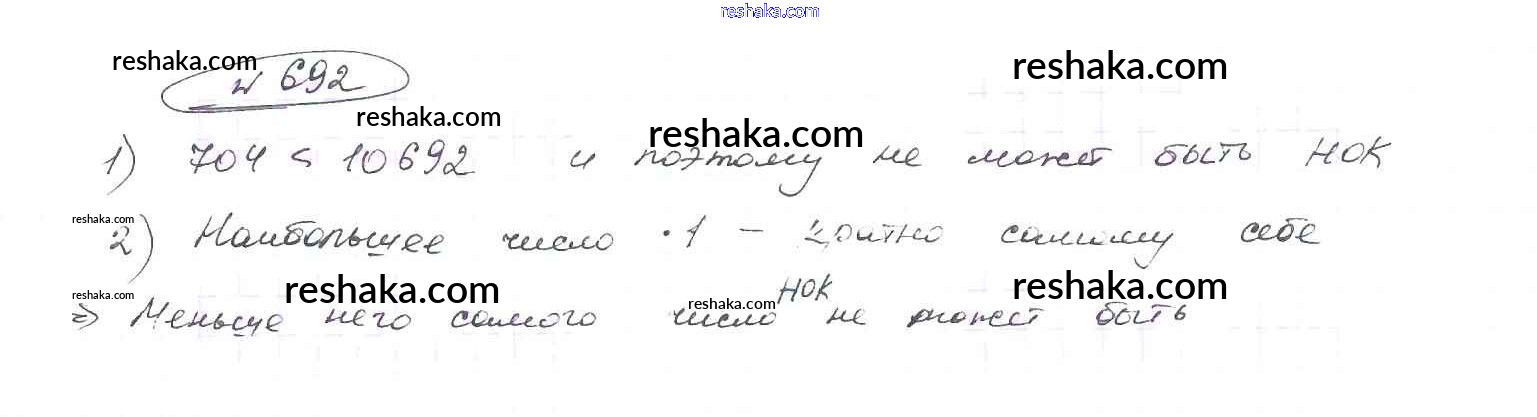 reshaka.com
reshaka.com
reshaka.com
№ 692
reshaka.com
reshaka.com
1) 704 < 10692 и поэтому не может быть НОК
reshaka.com
2) Наибольшее число · 1 – кратно самому себе
reshaka.com
reshaka.com
reshaka.com
reshaka.com
НОК
=> Меньше него самого число не может быть